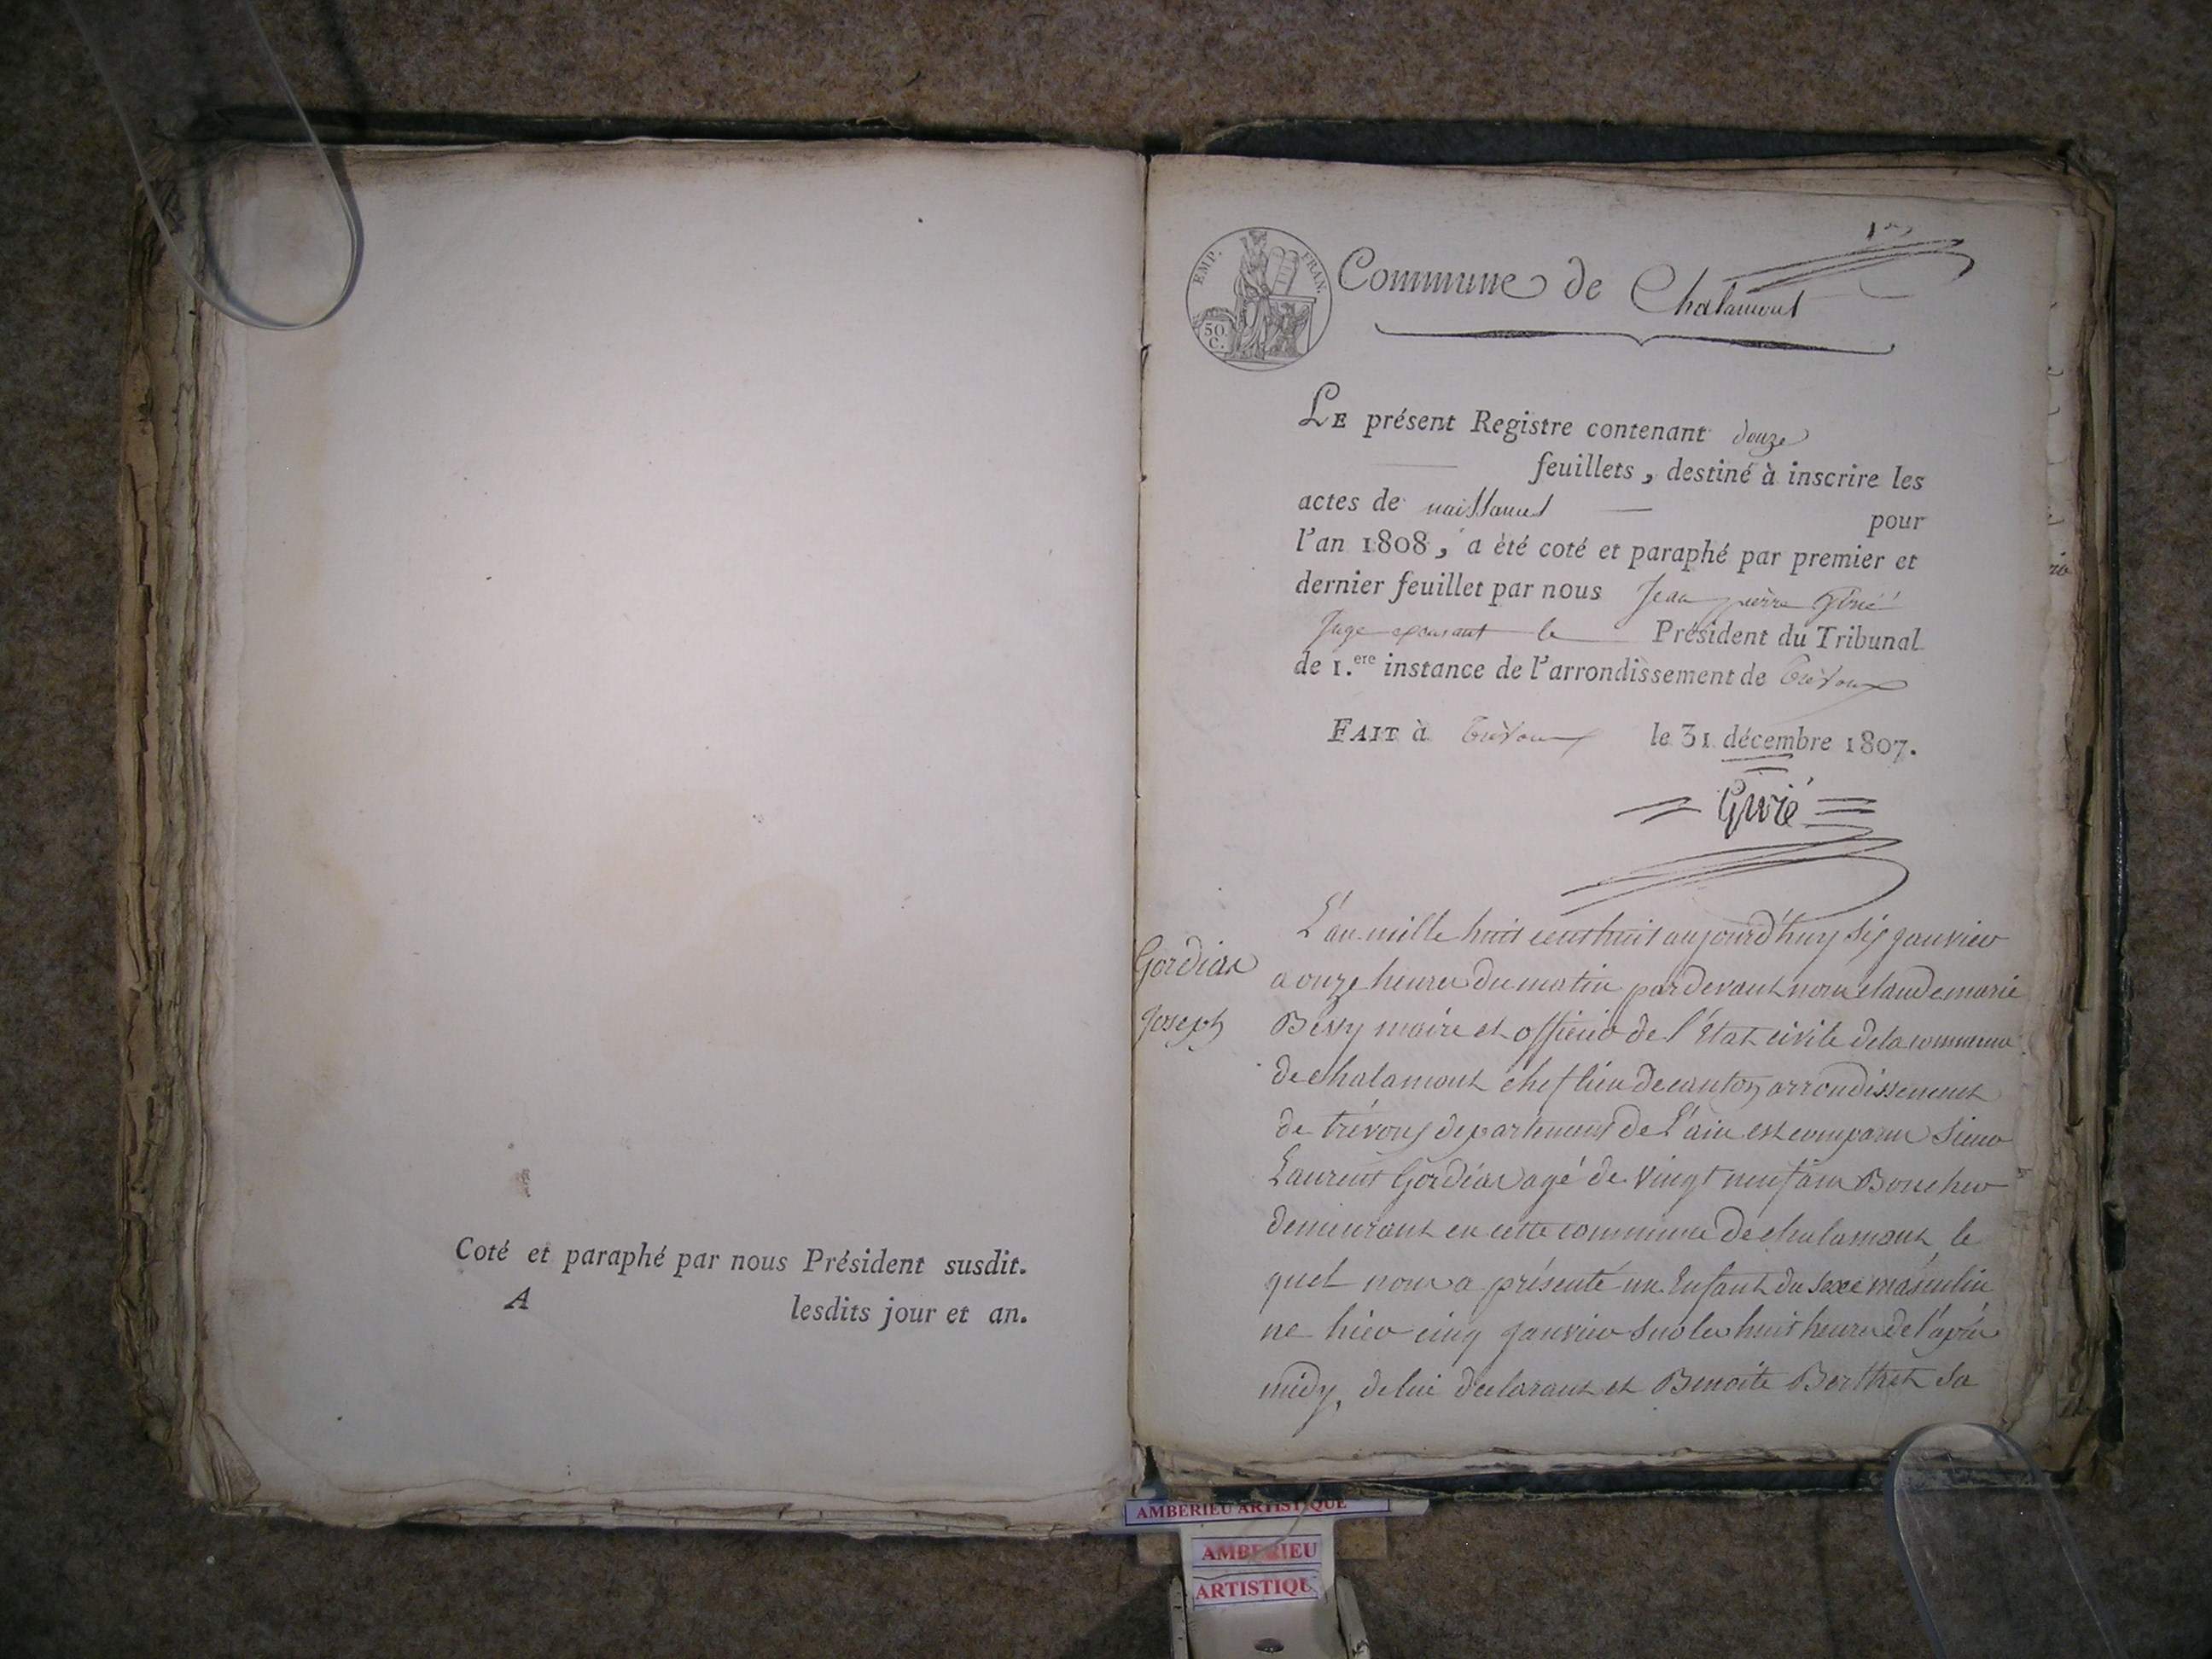 Coté et paraphé par nous Président susdit.
A lesdits jour et an.
1er
EMP. FRAN.
50 C.
Commune de Chalamont
LE présent Registre contenant douze
feuillets, destiné à inscrire les
actes de naissances pour
l'an 1808, a été coté et paraphé par premier et
dernier feuillet par nous Jean pierre
Juge le Président du Tribunal
de 1.ere instance de l'arrondissement de Trévoux
FAIT à Trévoux le 31 décembre 1807.
Gordiar
Joseph
L'an mille huit cent huit aujourd'huy six janvier
a onze heures du matin pardevant nous Claude marie
Bessy maire et officier de l'État civile de la commune
de chalamont chef lieu de canton arrondissement
de trévoux departement de L'ain est comparu Sieur
Laurent Gordiar agé de vingt neuf ans Boucher
demeurant en cette commune de chalamont, le
quel nous a présenté un Enfant du sexe masculin
ne hier cinq janvier sur les huit heures de l'après
midy, de lui déclarant et Benoite Berthet sa
AMBERIEU ARTISTIQUE
AMBERIEU
ARTISTIQU